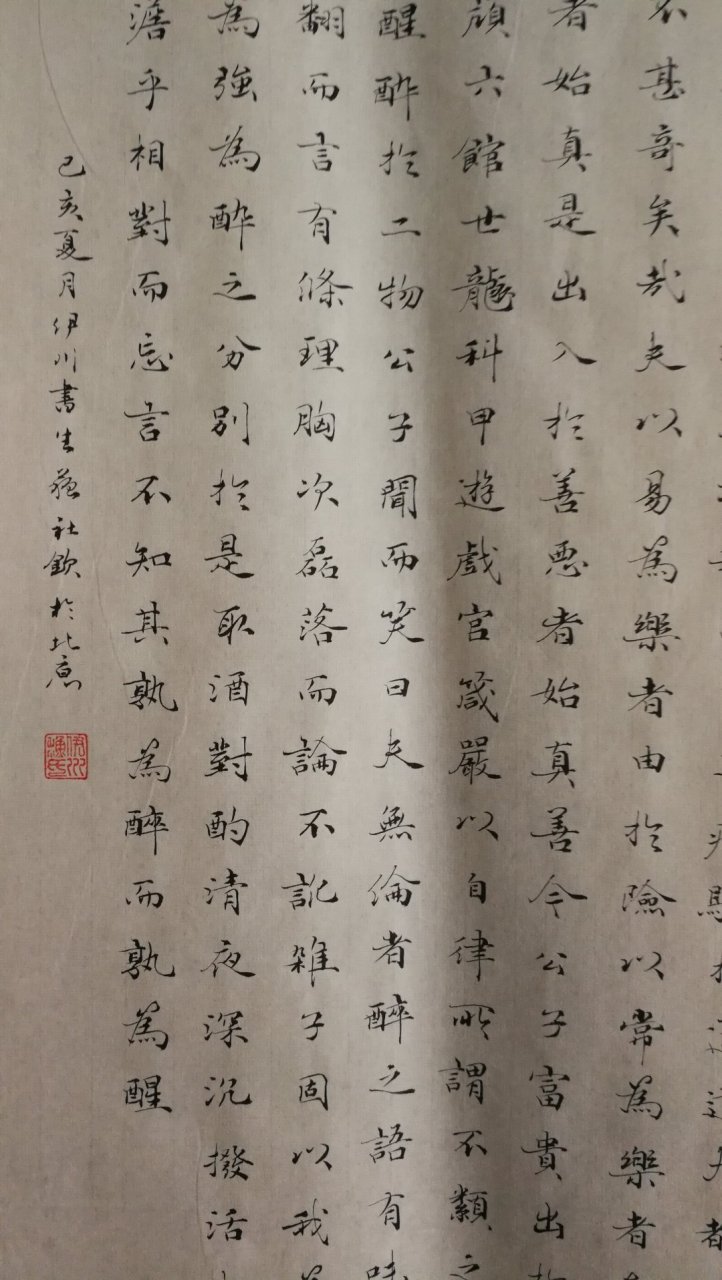 不甚奇矣哉夫以易為樂者由於險以常為樂者
者始真是出入於善惡者始真善今公子富貴出於
頎六館世龍科甲遊戲官箴嚴以自律所謂不類之
醒醉於二物公子聞而笑曰夫無倫者醉之語有味
翻而言有條理胸次磊落而論不訛雜子固以我為
為強為醉之分別於是取酒對酌清夜深沉撥活
澹乎相對而忘言不知其孰為醉而孰為醒
己亥夏月伊川書生蘇社欽於北京